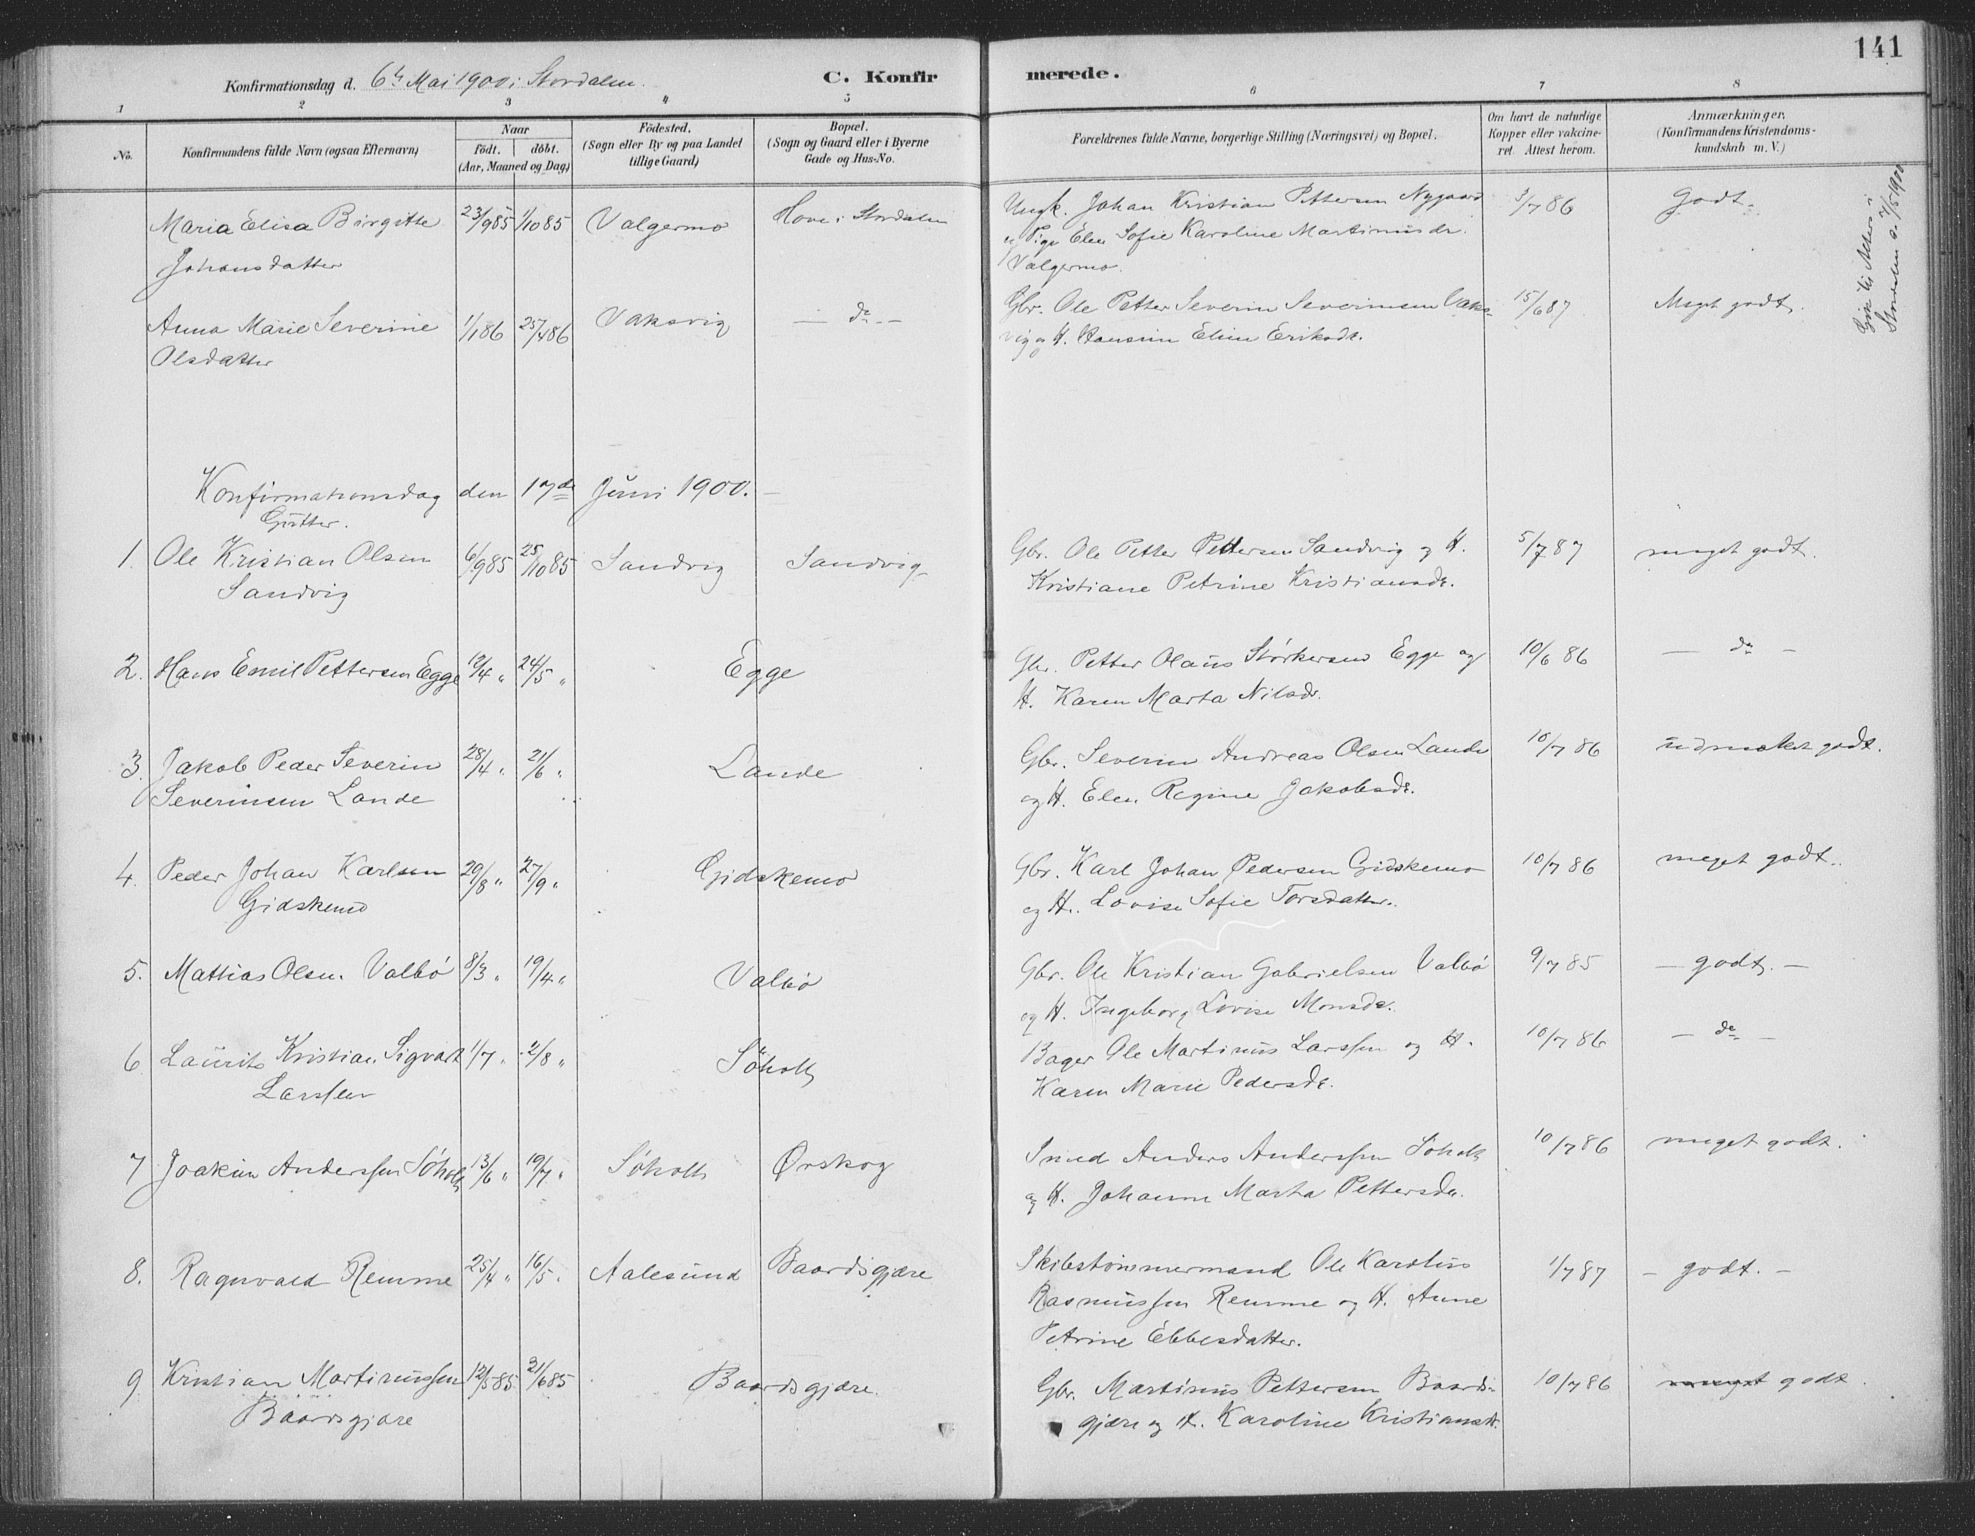 141
Konfirmationsdag d. 6te Mai 1900 i Stordalen. C. Konfirmerede.
1 2 3 4 5 6 7 8
No.
Konfirmandens fulde Navn (ogsaa Efternavn)
Naar
födt. döbt.
(Aar, Maaned og Dag)
Födested.
(Sogn eller By og paa Landet
tillige Gaard)
Bopæl.
(Sogn og Gaard eller i Byerne
Gade og Hus-No.
Forældrenes fulde Navne, borgerlige Stilling (Næringsvei) og Bopæl.
Om havt de naturlige
Kopper eller vakcine-
ret. Attest herom.
Anmærkninger.
(Konfirmandens Kristendoms-
kundskab m. V.)
Maria Elisa Birgitte 23/9 85 1/10 85 Valgermo Hove i Stordalen Ungk. Johan Kristian Pettersen Nygaard 3/7 86 Godt.
Johansdatter og Pige Elen Sofie Karoline Martinusdr.
Valgermo.
Anna Marie Severine 1/1 86 25/4 86 Vaksvig — do — Gbr. Ole Petter Severin Severinsen Vaks- 15/6 87 Meget godt.
Olsdatter vig og H. Hansine Eline Eriksdr.
Gik til Alters i
Stordalen d. 7/5 1900
Konfirmationsdag den 17de Juni 1900. —
Gutter.
1. Ole Kristian Olsen 6/9 85 25/10 85 Sandvig Sandvig Gbr. Ole Petter Pettersen Sandvig og H. 5/7 87 meget godt.
Sandvig Kristiane Petrine Kristiansdr.
2. Hans Emil Pettersen Egge 12/4 " 24/5 " Egge Gbr. Petter Olaus Störkersen Egge og 10/6 86 — do —
H. Karen Marta Nilsdr.
3. Jakob Peder Severin 28/4 " 21/6 " Lande Gbr. Severin Andreas Olsen Lande 10/7 86 udmærket godt.
Severinsen Lande og H. Elen Regine Jakobsdr.
4. Peder Johan Karlsen 29/8 " 27/9 " Gidskemo Gbr. Karl Johan Pedersen Gidskemo 10/7 86 meget godt.
Gidskemo og H. Lovise Sofie Torsdatter.
5. Mattias Olsen Valbö 8/3 " 19/4 " Valbö Gbr. Ole Kristian Gabrielsen Valbö 9/7 85 — godt. —
og H. Ingeborg Lovise Monsdr.
6 Laurits Kristian Sigvart 1/7 " 2/8 " Söholt Bager Ole Martinus Larssen og H. 10/7 86 — do —
Larssen Karen Marie Pedersdr.
7 Joakim Anderssen Søholt 13/6 " 19/7 " Søholt Ørskog Smed Anders Anderssen Søholt 10/7 86 meget godt.
og H. Johanne Marta Pettersdr.
8. Ragnvald Remme 25/4 " 16/5 " Aalesund Baardsgjære Skibstømmermand Ole Karolus 1/7 87 — godt. —
Rasmussen Remme og H. Anne
Petrine Ebbesdatter.
9 Kristian Martinussen 12/5 85 21/6 85 Baardsgjære. Gbr. Martinus Pettersen Baards- 10/7 86 meget godt.
Baardsgjære gjære og H. Karoline Kristiansdr.